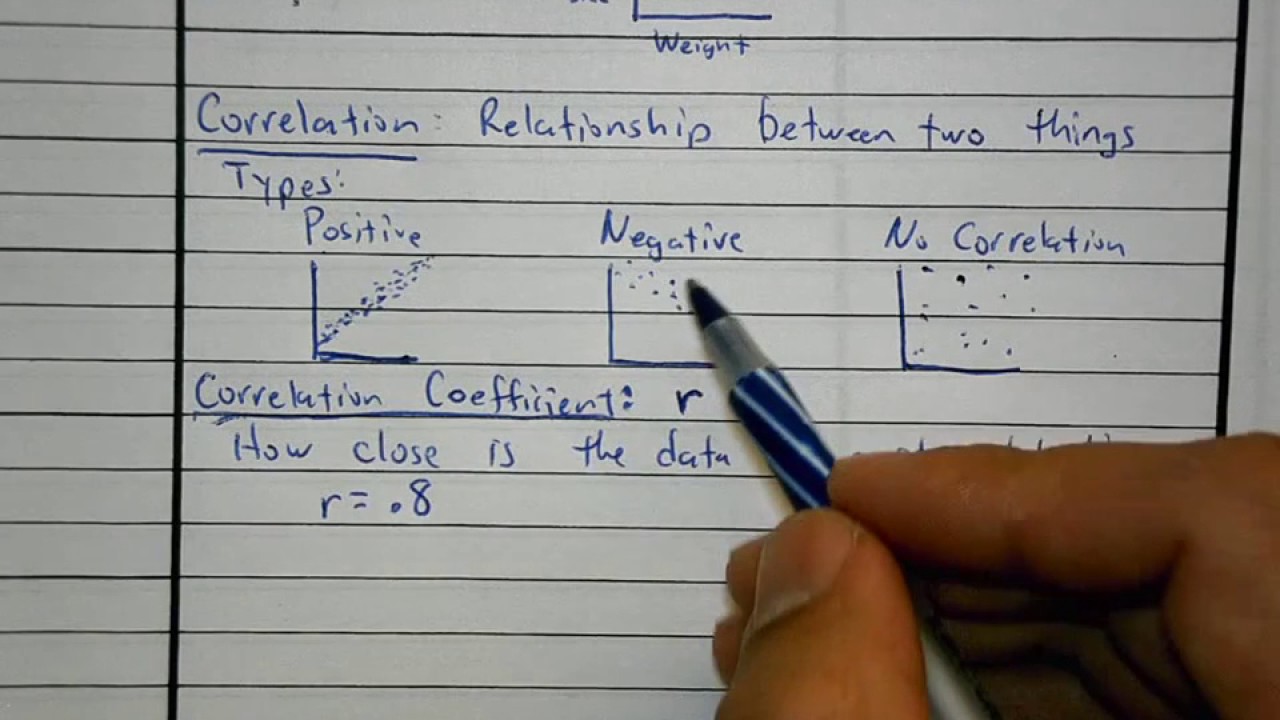 Weight
Correlation: Relationship between two things
Types:
Positive Negative No Correlation
Correlation Coefficient: r
How close is the data
r = .8